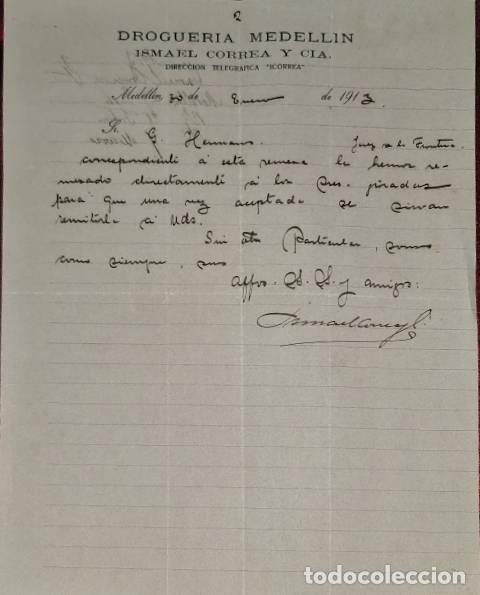 2
DROGUERIA MEDELLIN
ISMAEL CORREA Y CIA.
DIRECCION TELEGRAFICA "ICORREA"
Medellin, 30 de Enero de 1913
Sr. G. Hermanos. Jerez de la Frontera
correspondiente á esta remesa la hemos re-
mesado directamente á los Sres. jirados
para que una vez aceptada se sirvan
remitirla á Uds.
Sin otro Particular, somos
como siempre, sus
affmos. S. S. y amigos:
Ismael Correa y C.
todocoleccion.net